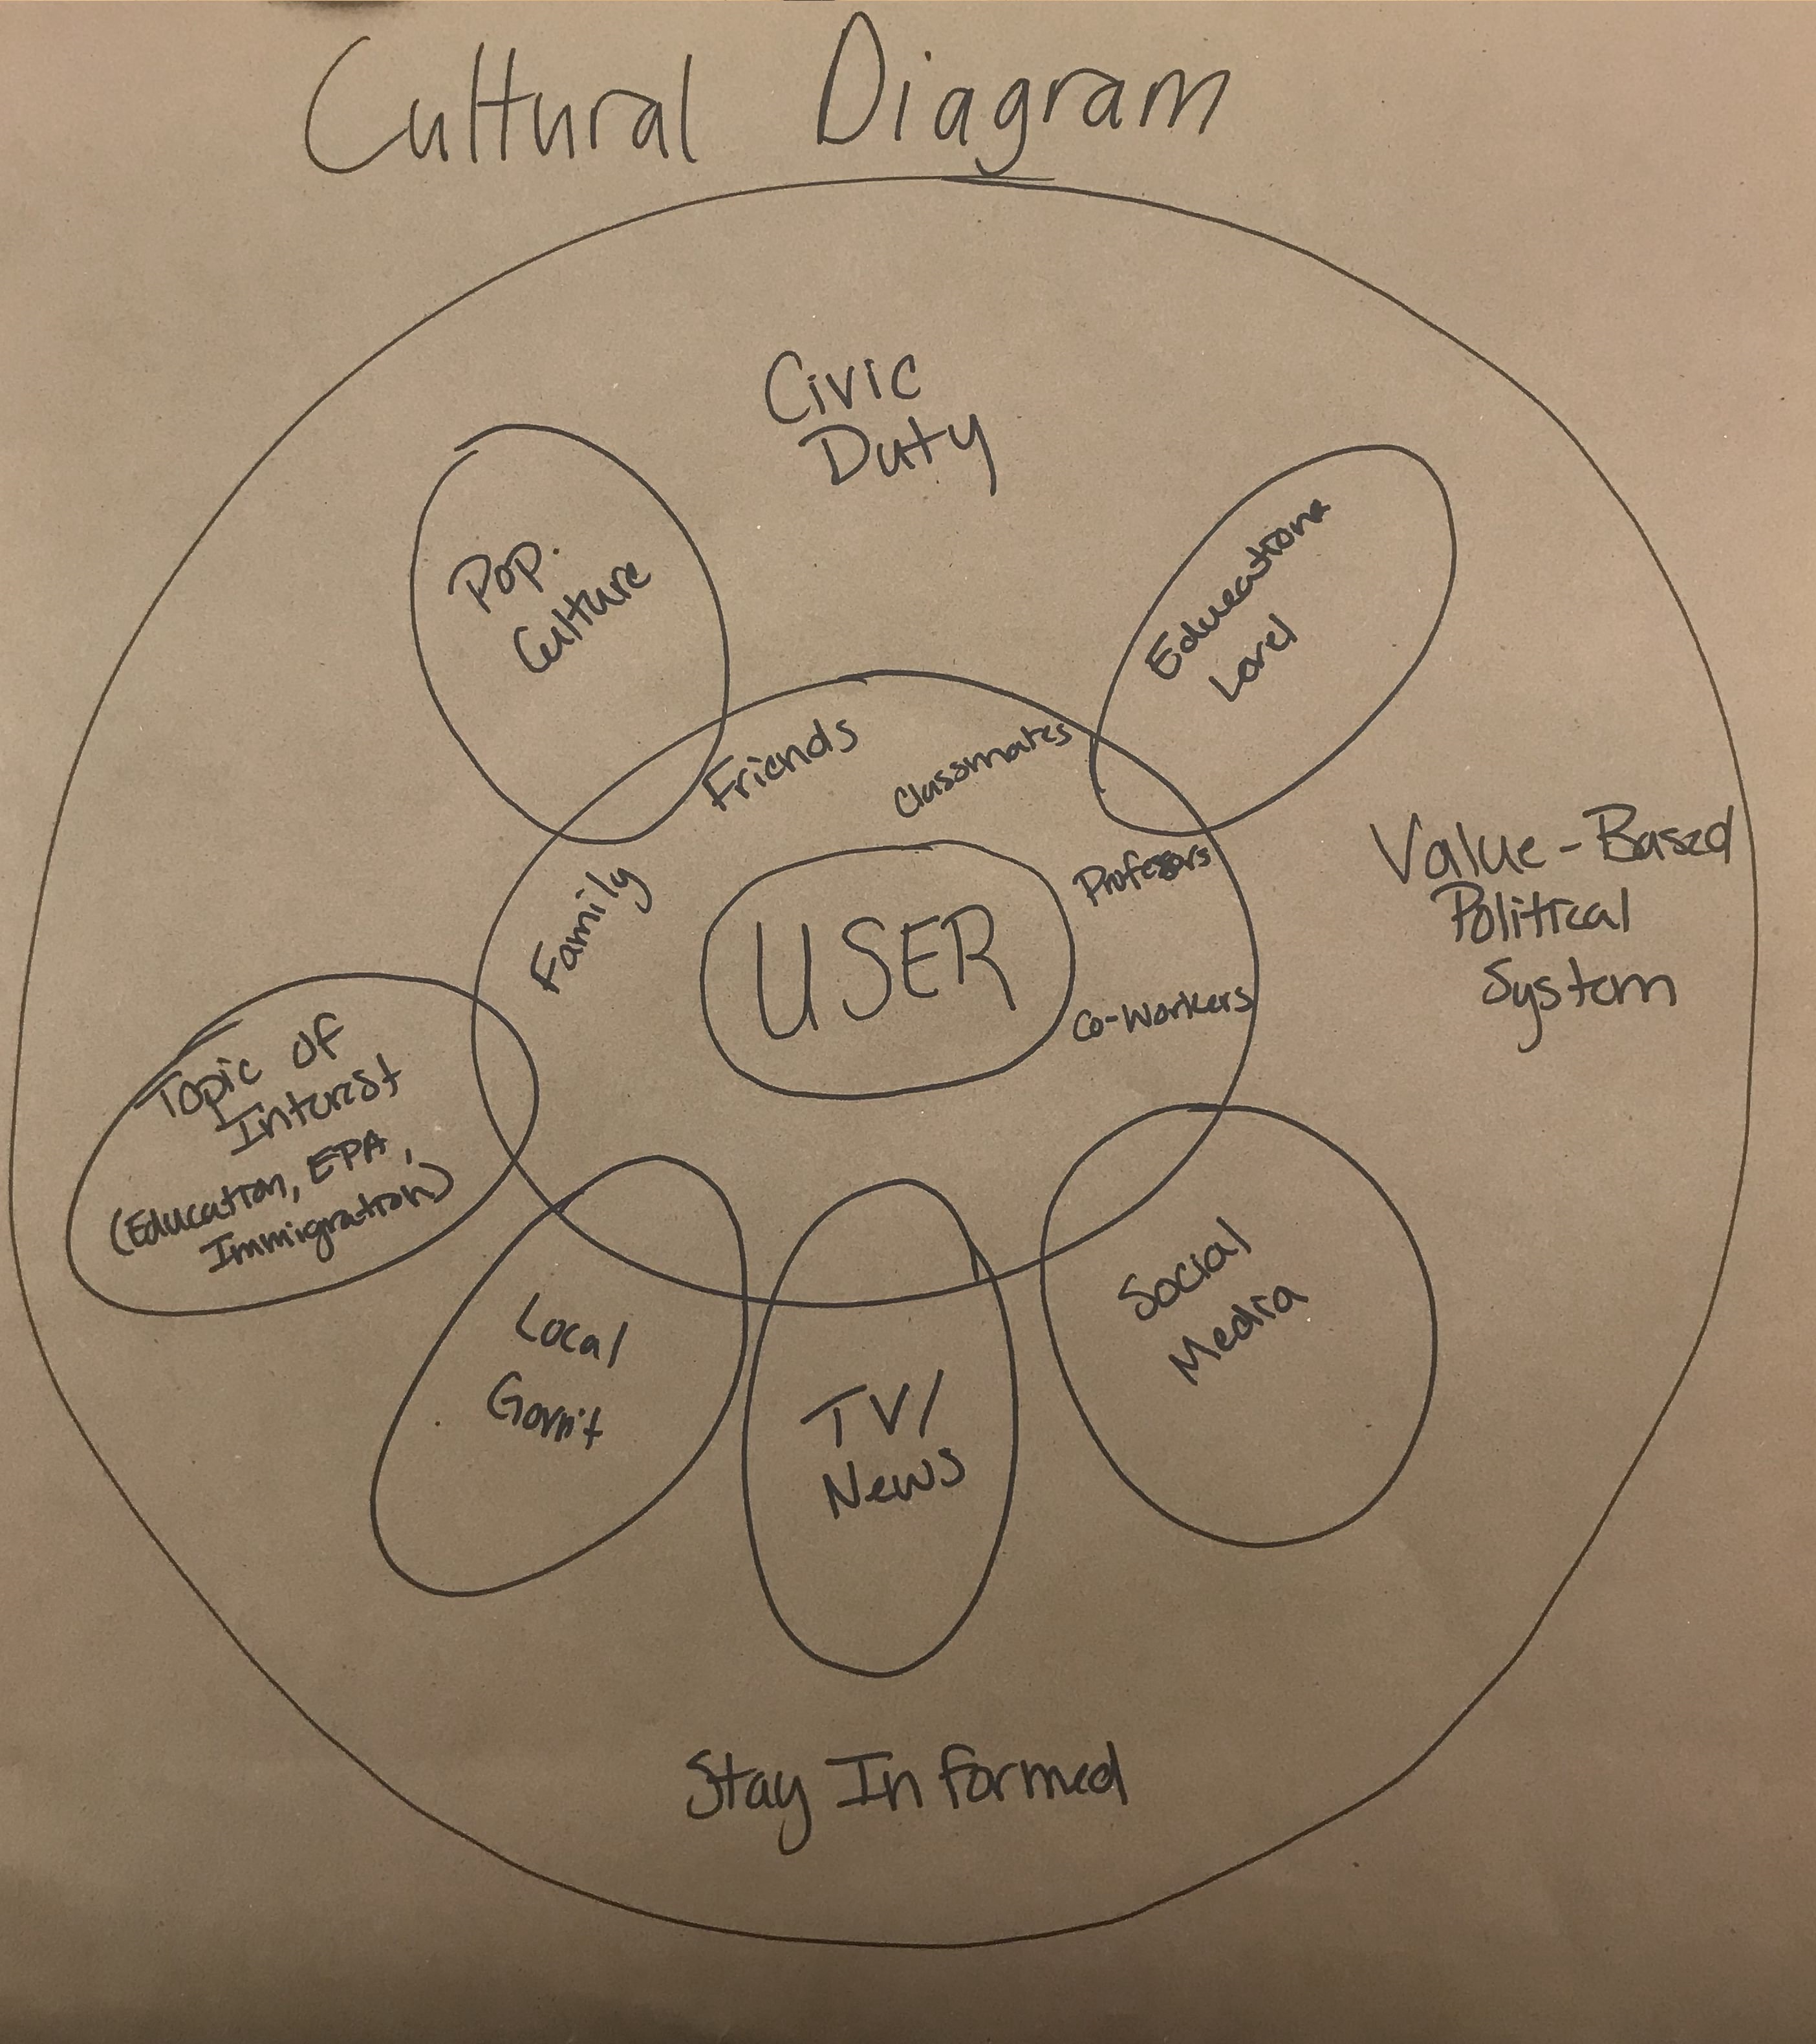 Cultural Diagram
Civic
Duty
Pop.
Culture
Educationa
Level
Friends
Classmates
Family
Professors
USER
Co-Workers
Value-Based
Political
System
Topic of
Interest
(Education, EPA,
Immigration)
Local
Govn't
TV/
News
Social
Media
Stay Informed